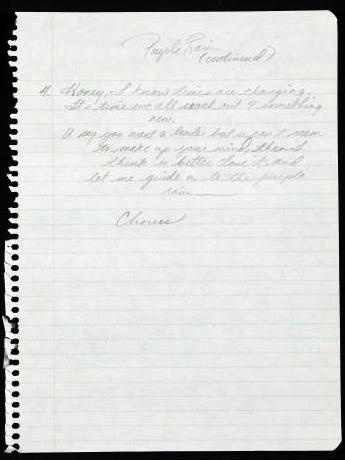 Purple Rain
(continued)
4. Honey, I know times are changing.
It's time we all reach out 4 something
new.
U say you want a leader but u can't seem
to make up your mind, then I
think u better close it and
let me guide u to the purple
rain
Chorus